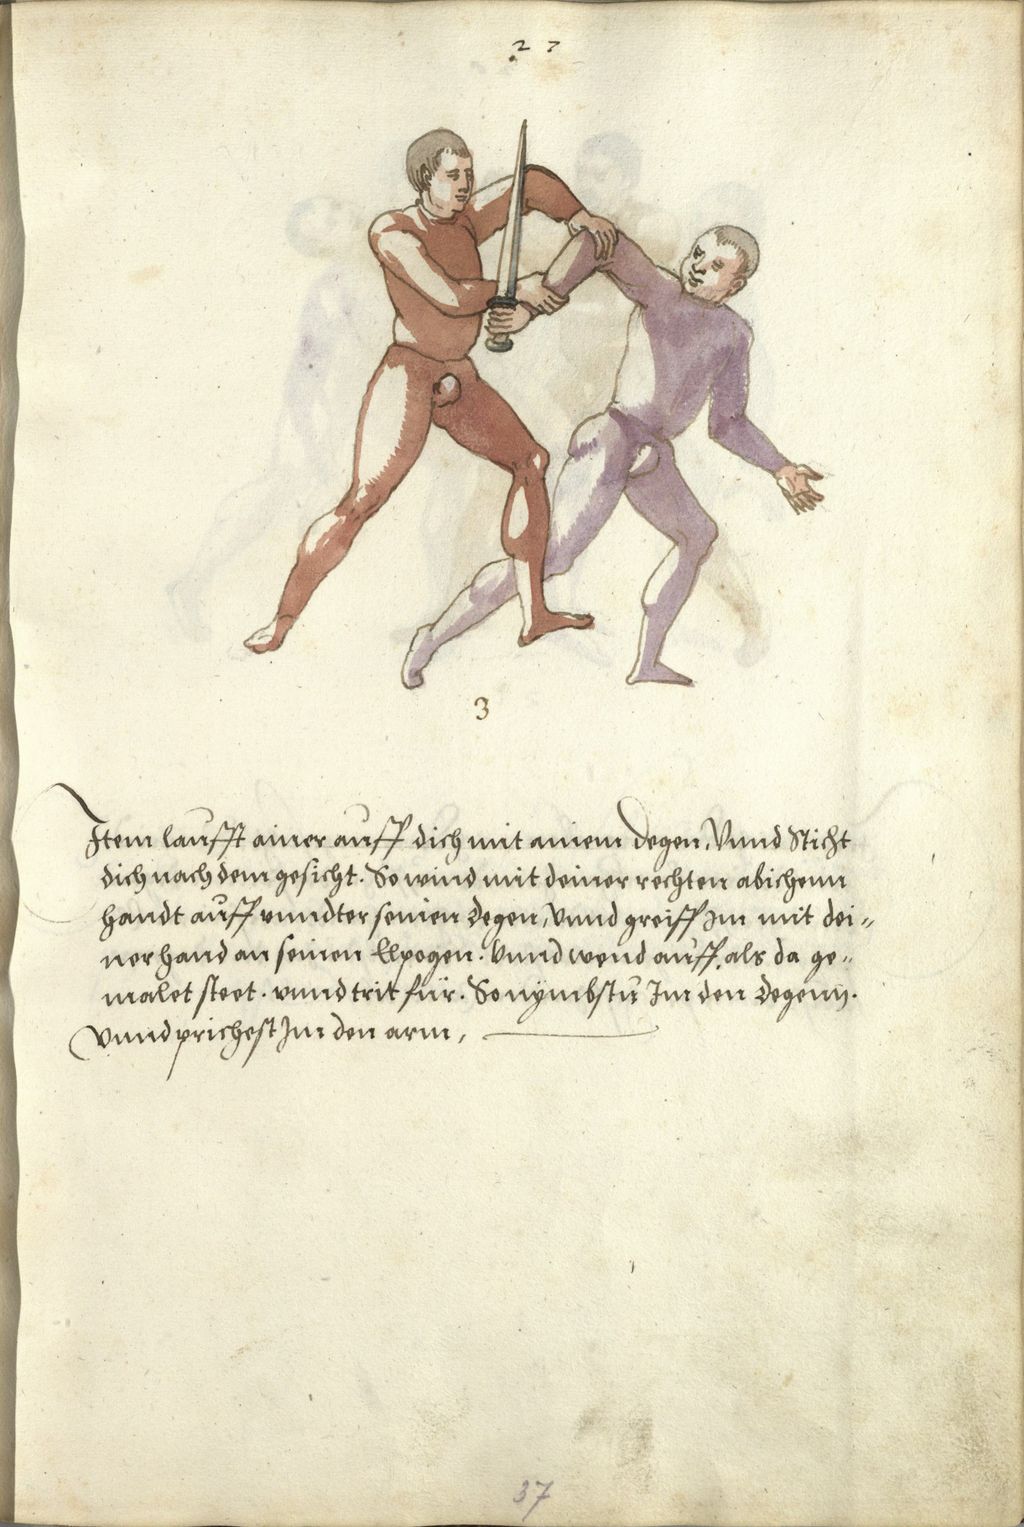 27
3
Item laufft ainer auff dich mit ainem degen, Vnnd Sticht
dich nach dem gesicht. So wind mit deiner rechten abichenn
handt auff vnndter seinen degen, Vnnd greiff im mit dei=
ner hand an seinen Elpogen. Vnnd wend auff, als da ge=
malet steet. vnnd trit für. So nymbstu Im den degenn.
Vnnd prichest Im den arm,
37